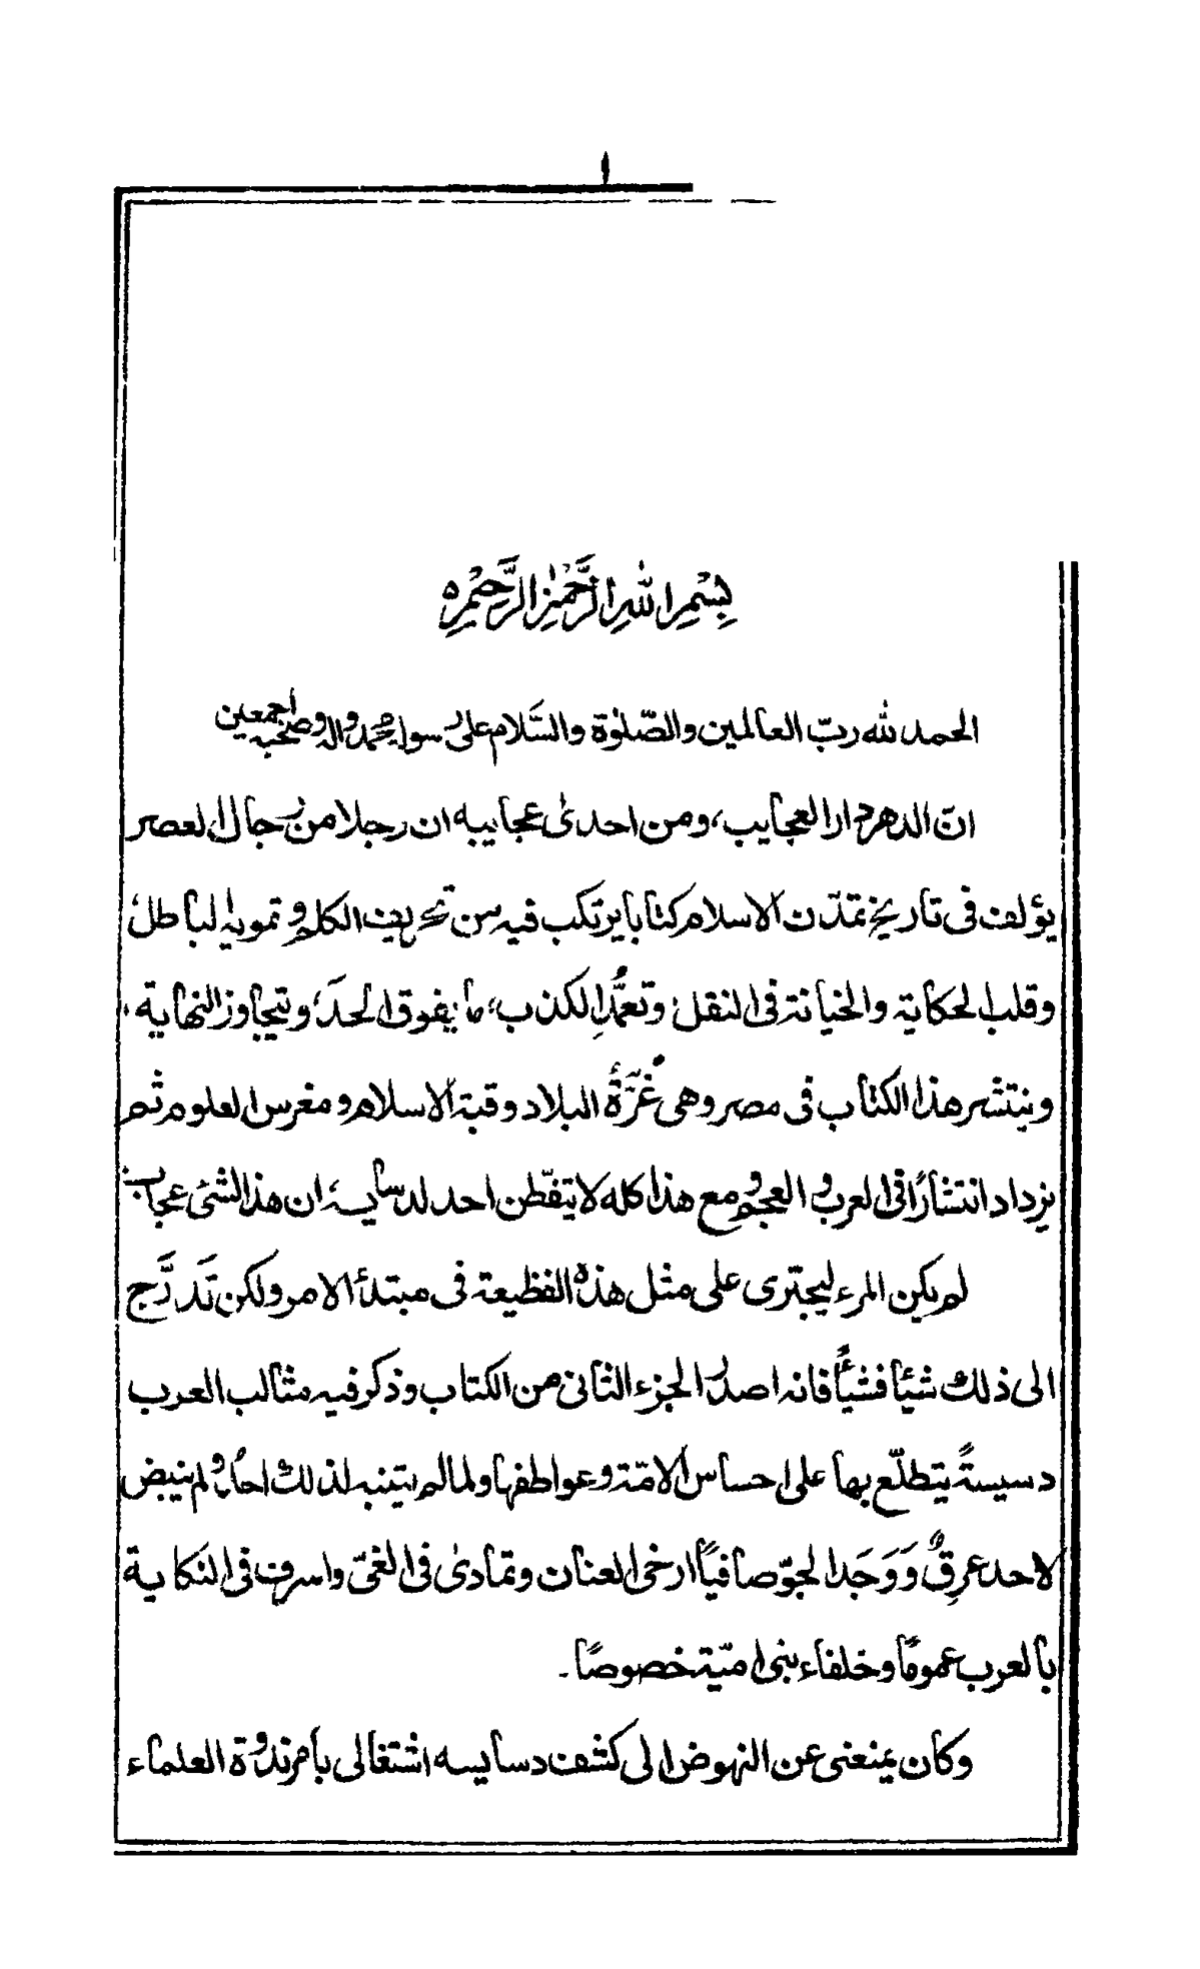 ١
بِسْمِ اللهِ الرَّحْمٰنِ الرَّحِيْمِ
الحمد لله ربّ العالمين والصّلوٰة والسَّلام على رسوله محمد واله وصحبه اجمعين
انّ الدهر دار العجايب، ومن احدىٰ عجايبه ان رجلا من رجال العصر
يؤلف فى تاريخ تمدّن الاسلام كتابا يرتكب فيه من تحريف الكلم وتمويه الباطل،
وقلب الحكاية والخيانة فى النقل، وتعمُّدِ الكذب، ما يفوق الحدَّ، وتيجاوز النهاية،
وينتشر هذا الكتاب فى مصر وهى غُرَّةُ البلاد وقبة الاسلام ومغرس العلوم ثم
يزداد انتشارًا فى العرب والعجم ومع هذا كله لا يتفطّن احد لدسايسه، ان هذا الشئ عجاب
لم يكن المرء ليجترى على مثل هذه الفظيعة فى مبتدأ الامر ولكن تَدَرَّج
الى ذلك شيئا فشيئًا فانه اصدر الجزء الثانى من الكتاب وذكر فيه مثالب العرب
دسيسةً يتطلّع بها على احساس الامّة وعواطفها ولما لم يتنبه لذلك احد، ولم ينبض
لاحد عرقٌ وَوَجَد الجوّ صافيًا ارخى العنان وتمادىٰ فى الغىّ واسرف فى النكاية
بالعرب عمومًا وخلفاء بنى اميّة خصوصًا۔
وكان يمنعنى عن النهوض الى كشف دسايسه اشتغالى بامر ندوة العلماء